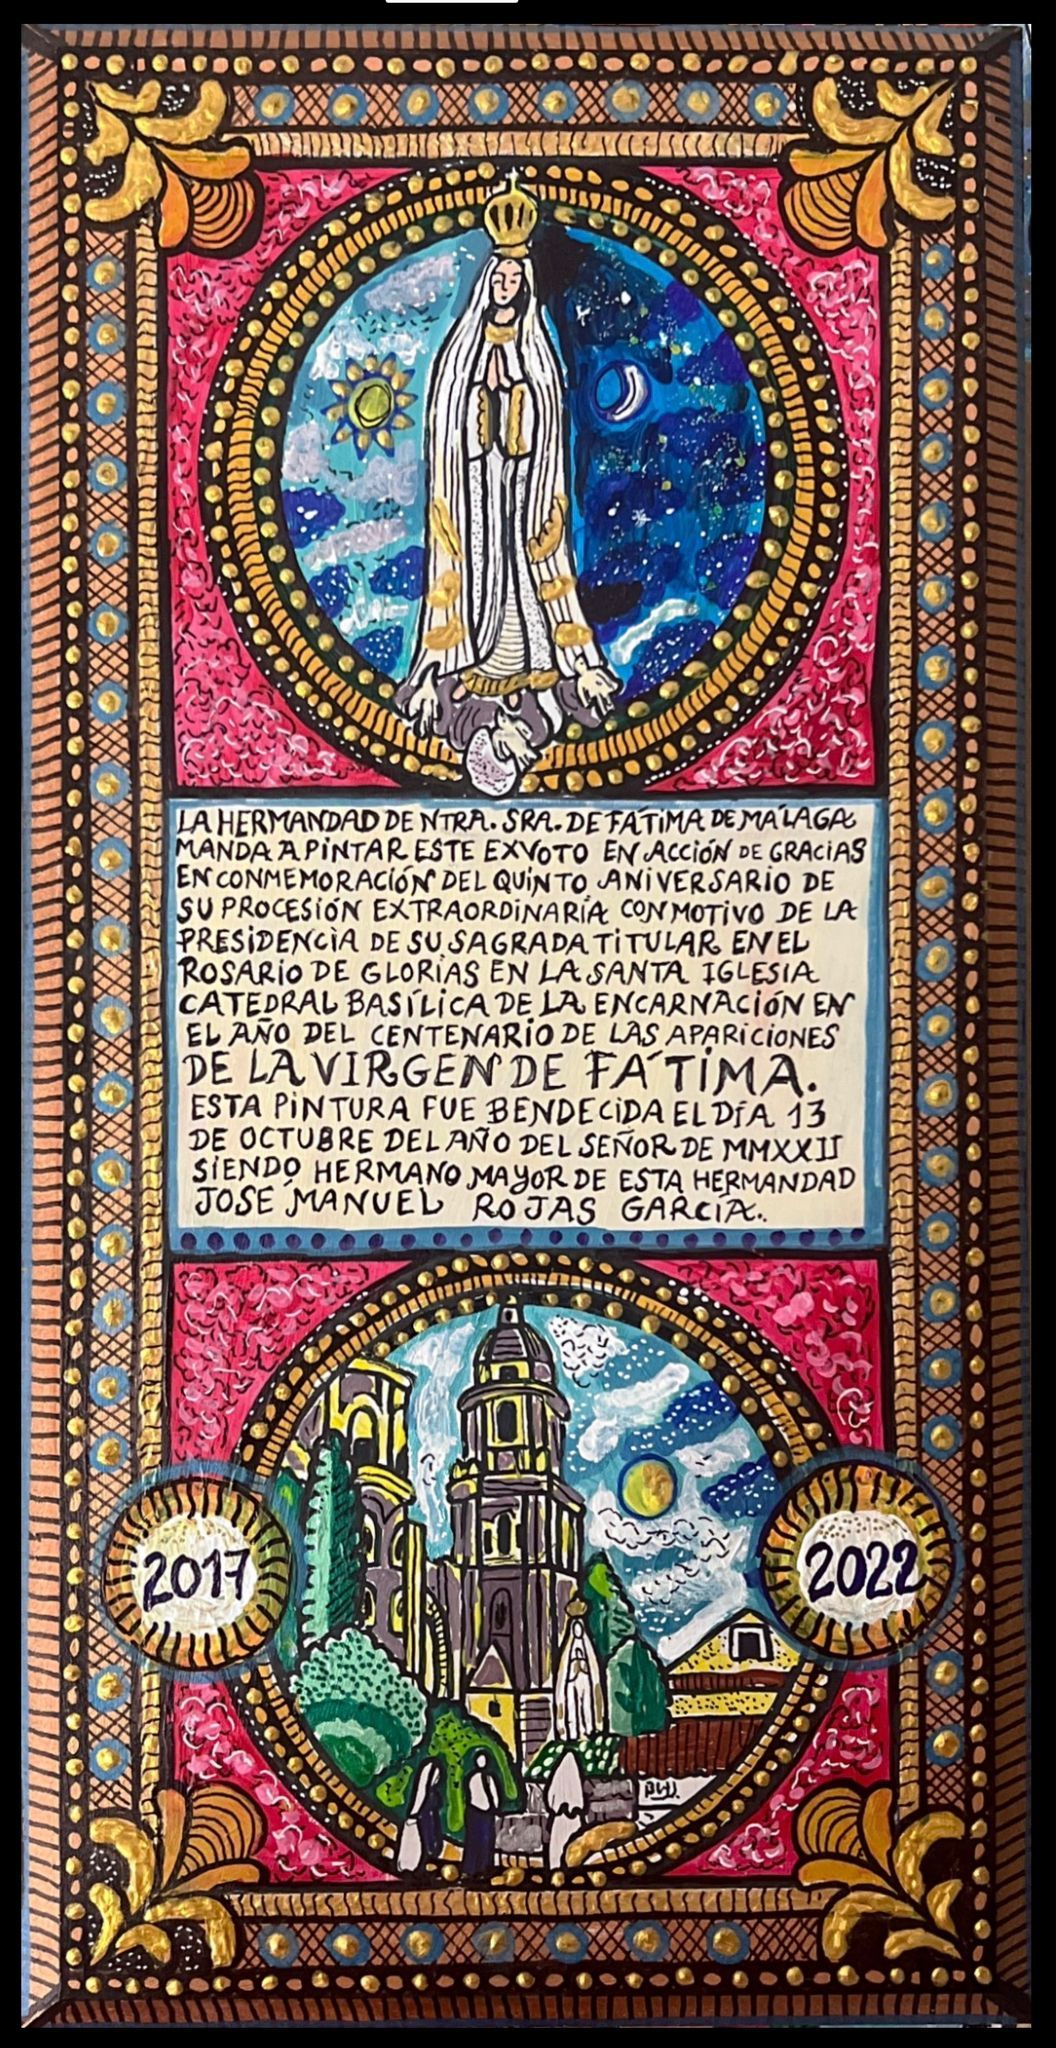 LA HERMANDAD DE NTRA. SRA. DE FÁTIMA DE MÁLAGA
MANDA A PINTAR ESTE EXVOTO EN ACCIÓN DE GRACIAS
EN CONMEMORACIÓN DEL QUINTO ANIVERSARIO DE
SU PROCESIÓN EXTRAORDINARIA CON MOTIVO DE LA
PRESIDENCIA DE SU SAGRADA TITULAR EN EL
ROSARIO DE GLORIAS EN LA SANTA IGLESIA
CATEDRAL BASÍLICA DE LA ENCARNACIÓN EN
EL AÑO DEL CENTENARIO DE LAS APARICIONES
DE LA VIRGEN DE FÁTIMA.
ESTA PINTURA FUE BENDECIDA EL DÍA 13
DE OCTUBRE DEL AÑO DEL SEÑOR DE MMXXII
SIENDO HERMANO MAYOR DE ESTA HERMANDAD
JOSÉ MANUEL ROJAS GARCÍA.
2017
2022